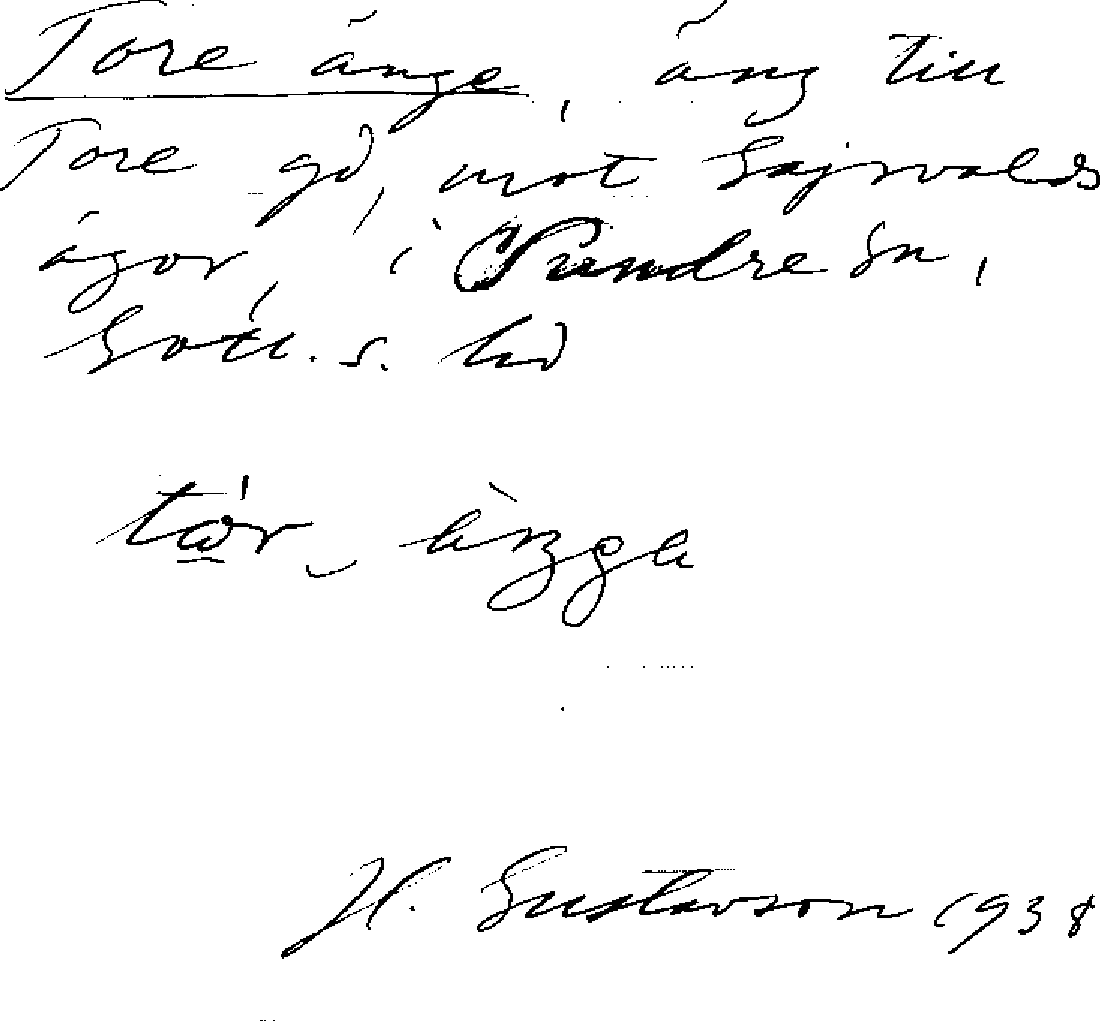 Tore änge, äng till
Tore gd, mot Sajvalds
ägor, i Sundre sn,
Gotl. s. hd
H. Gustavson 1938